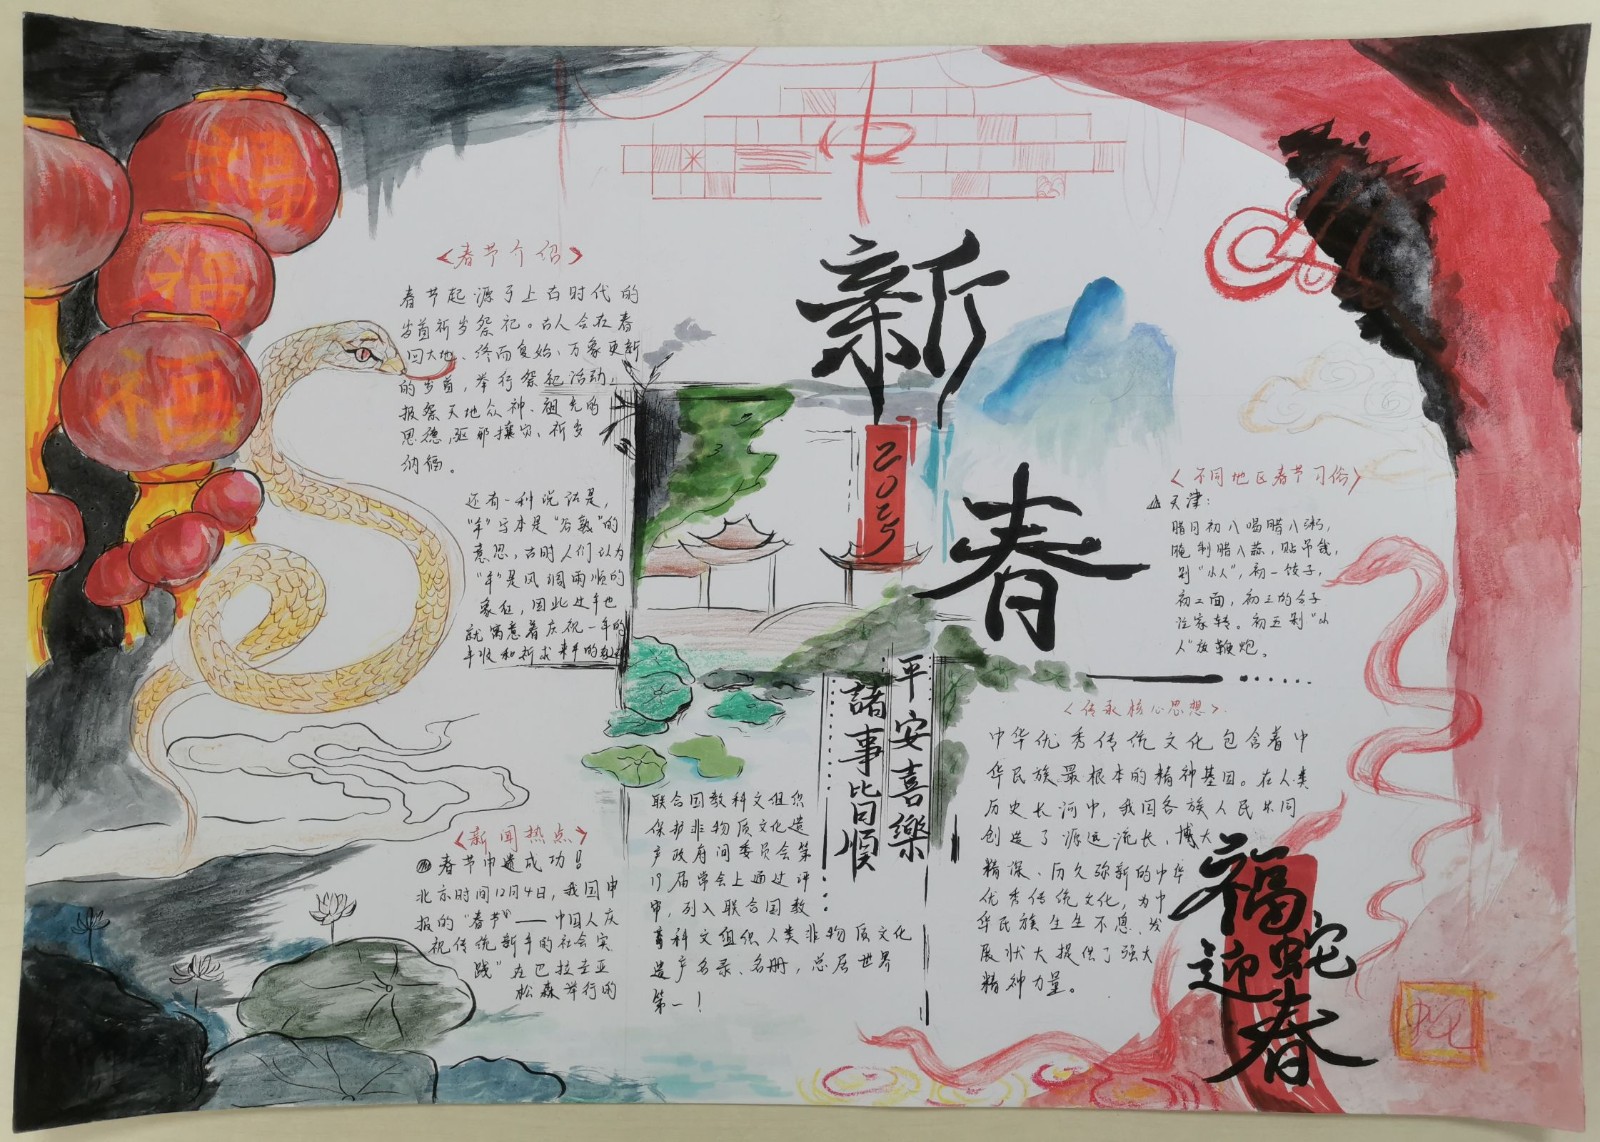 中
福
福
福
新
春
2025
<春节介绍>
春节起源于上古时代的
岁首祈岁祭祀。古人会在春
回大地、终而复始、万象更新
的岁首，举行祭祀活动，
报祭天地众神、祖先的
恩德，驱邪攘灾、祈岁
纳福。
还有一种说法是，
"年"字本是"谷熟"的
意思，古时人们认为
"年"是风调雨顺的
象征，因此过年也
就寓意着庆祝一年的
丰收和祈求来年的
<新闻热点>
春节申遗成功！
北京时间12月4日，我国申
报的"春节"——中国人庆
祝传统新年的社会实
践"在巴拉圭亚
松森举行的
联合国教科文组织
保护非物质文化遗
产政府间委员会第
19届常会上通过评
审，列入联合国教
育科文组织人类非物质文化
遗产名录、名册，总居世界
第一！
平安喜樂
諸事皆順
<不同地区春节习俗>
天津：
腊月初八喝腊八粥，
腌制腊八蒜，贴吊钱，
剁"小人"，初一饺子，
初二面，初三的合子
往家转。初五剁"小
人"放鞭炮。
<传承核心思想>
中华优秀传统文化包含着中
华民族最根本的精神基因。在人类
历史长河中，我国各族人民共同
创造了源远流长、博大
精深、历久弥新的中华
优秀传统文化，为中
华民族生生不息、发
展状大提供了强大
精神力量。
福蛇
迎春